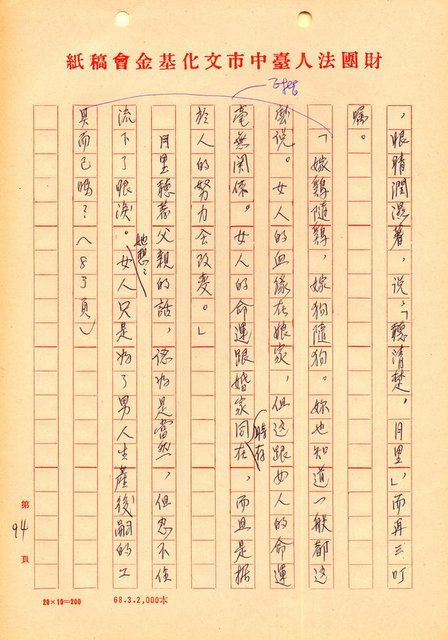 財團法人臺中市文化基金會稿紙
，眼睛潤濕著，說：「聽清楚，月里」，而再三叮
囑。
「嫁鷄隨鷄，嫁狗隨狗。妳也知道一般都這
麼說。女人的血緣在娘家，但這跟女人的命運
毫無関係。女人的命運跟婚家同在，而且是據
時存
於人的努力会改变。」
月里聽着父親的話，認為是當然，但忍不住
她想：
流下了眼淚。女人只是為了男人生產後嗣的工
具而已嗎？（83頁）
第94頁
20×10=200
68.3.2,000本